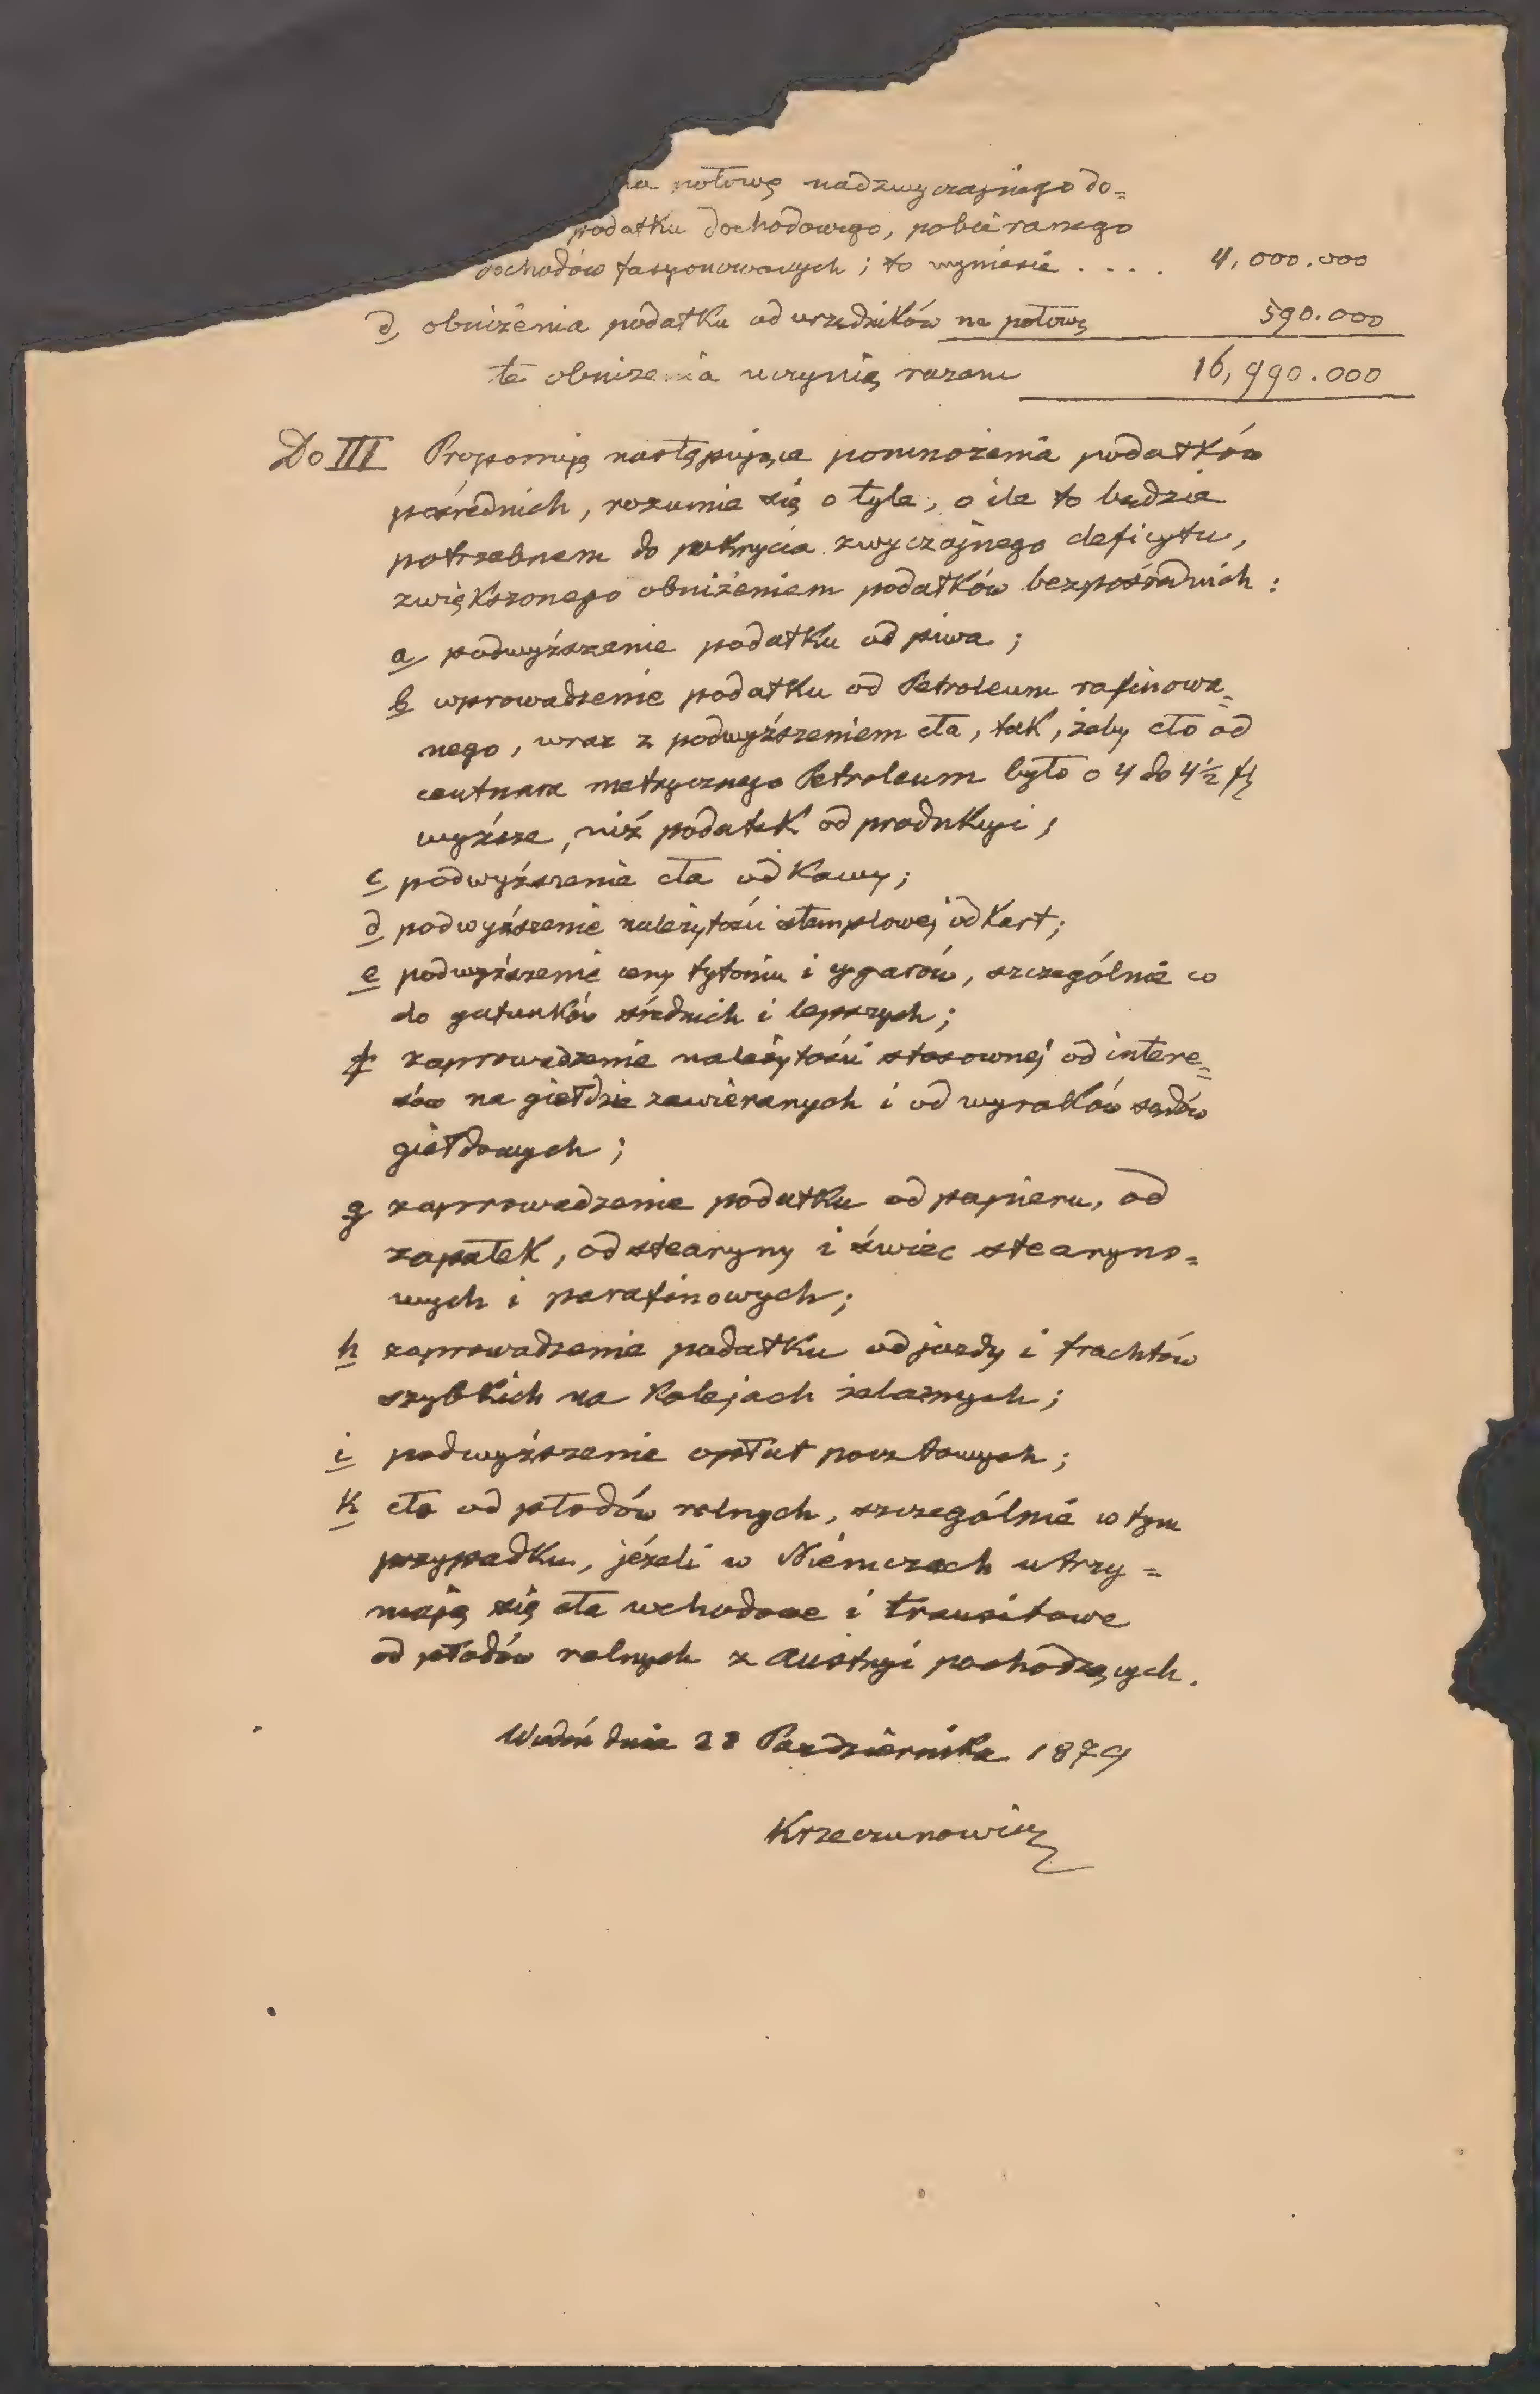 na połowę nadzwyczajnego do=
podatku dochodowego, pobieranego
dochodów fasyonowanych; to wyniesie . . . . 4,000.000
d, obniżenia podatku od urzędników na połowę 590.000
te obniżenia uczynią razem 16,990.000
Do III Proponuję następujące pomnożenia podatków
pośrednich, rozumie się o tyle, o ile to będzie
potrzebnem do pokrycia zwyczajnego deficytu,
zwiększonego obniżeniem podatków bezpośrednich :
a, podwyższenie podatku od piwa ;
b wprowadzenie podatku od Petroleum rafinowa=
nego, wraz z podwyższeniem cła, tak, żeby cło od
centnara metrycznego Petroleum było o 4 do 4½ fl
wyższe, niż podatek od produkcyi ;
c podwyższenie cła od Kawy ;
d podwyższenie należytości stemplowej od Kart ;
e podwyższenie ceny tytoniu i cygarów, szczególnie co
do gatunków średnich i lepszych ;
f zaprowadzenie należytości stosownej od intere=
sów na giełdzie zawieranych i od wyroków sądów
giełdowych ;
g zaprowadzenie podatku od papieru, od
zapałek, od stearyny i świec stearyno=
wych i parafinowych ;
h zaprowadzenie podatku od jazdy i frachtów
szybkich na Kolejach żelaznych ;
i podwyższenie opłat pocztowych ;
k cło od płodów rolnych, szczególnie w tym
przypadku, jeżeli w Niemczech utrzy=
mają się cła wchodowe i transitowe
od płodów rolnych z Austryi pochodzących.
Wiedeń dnia 28 Października 1879
Krzeczunowicz